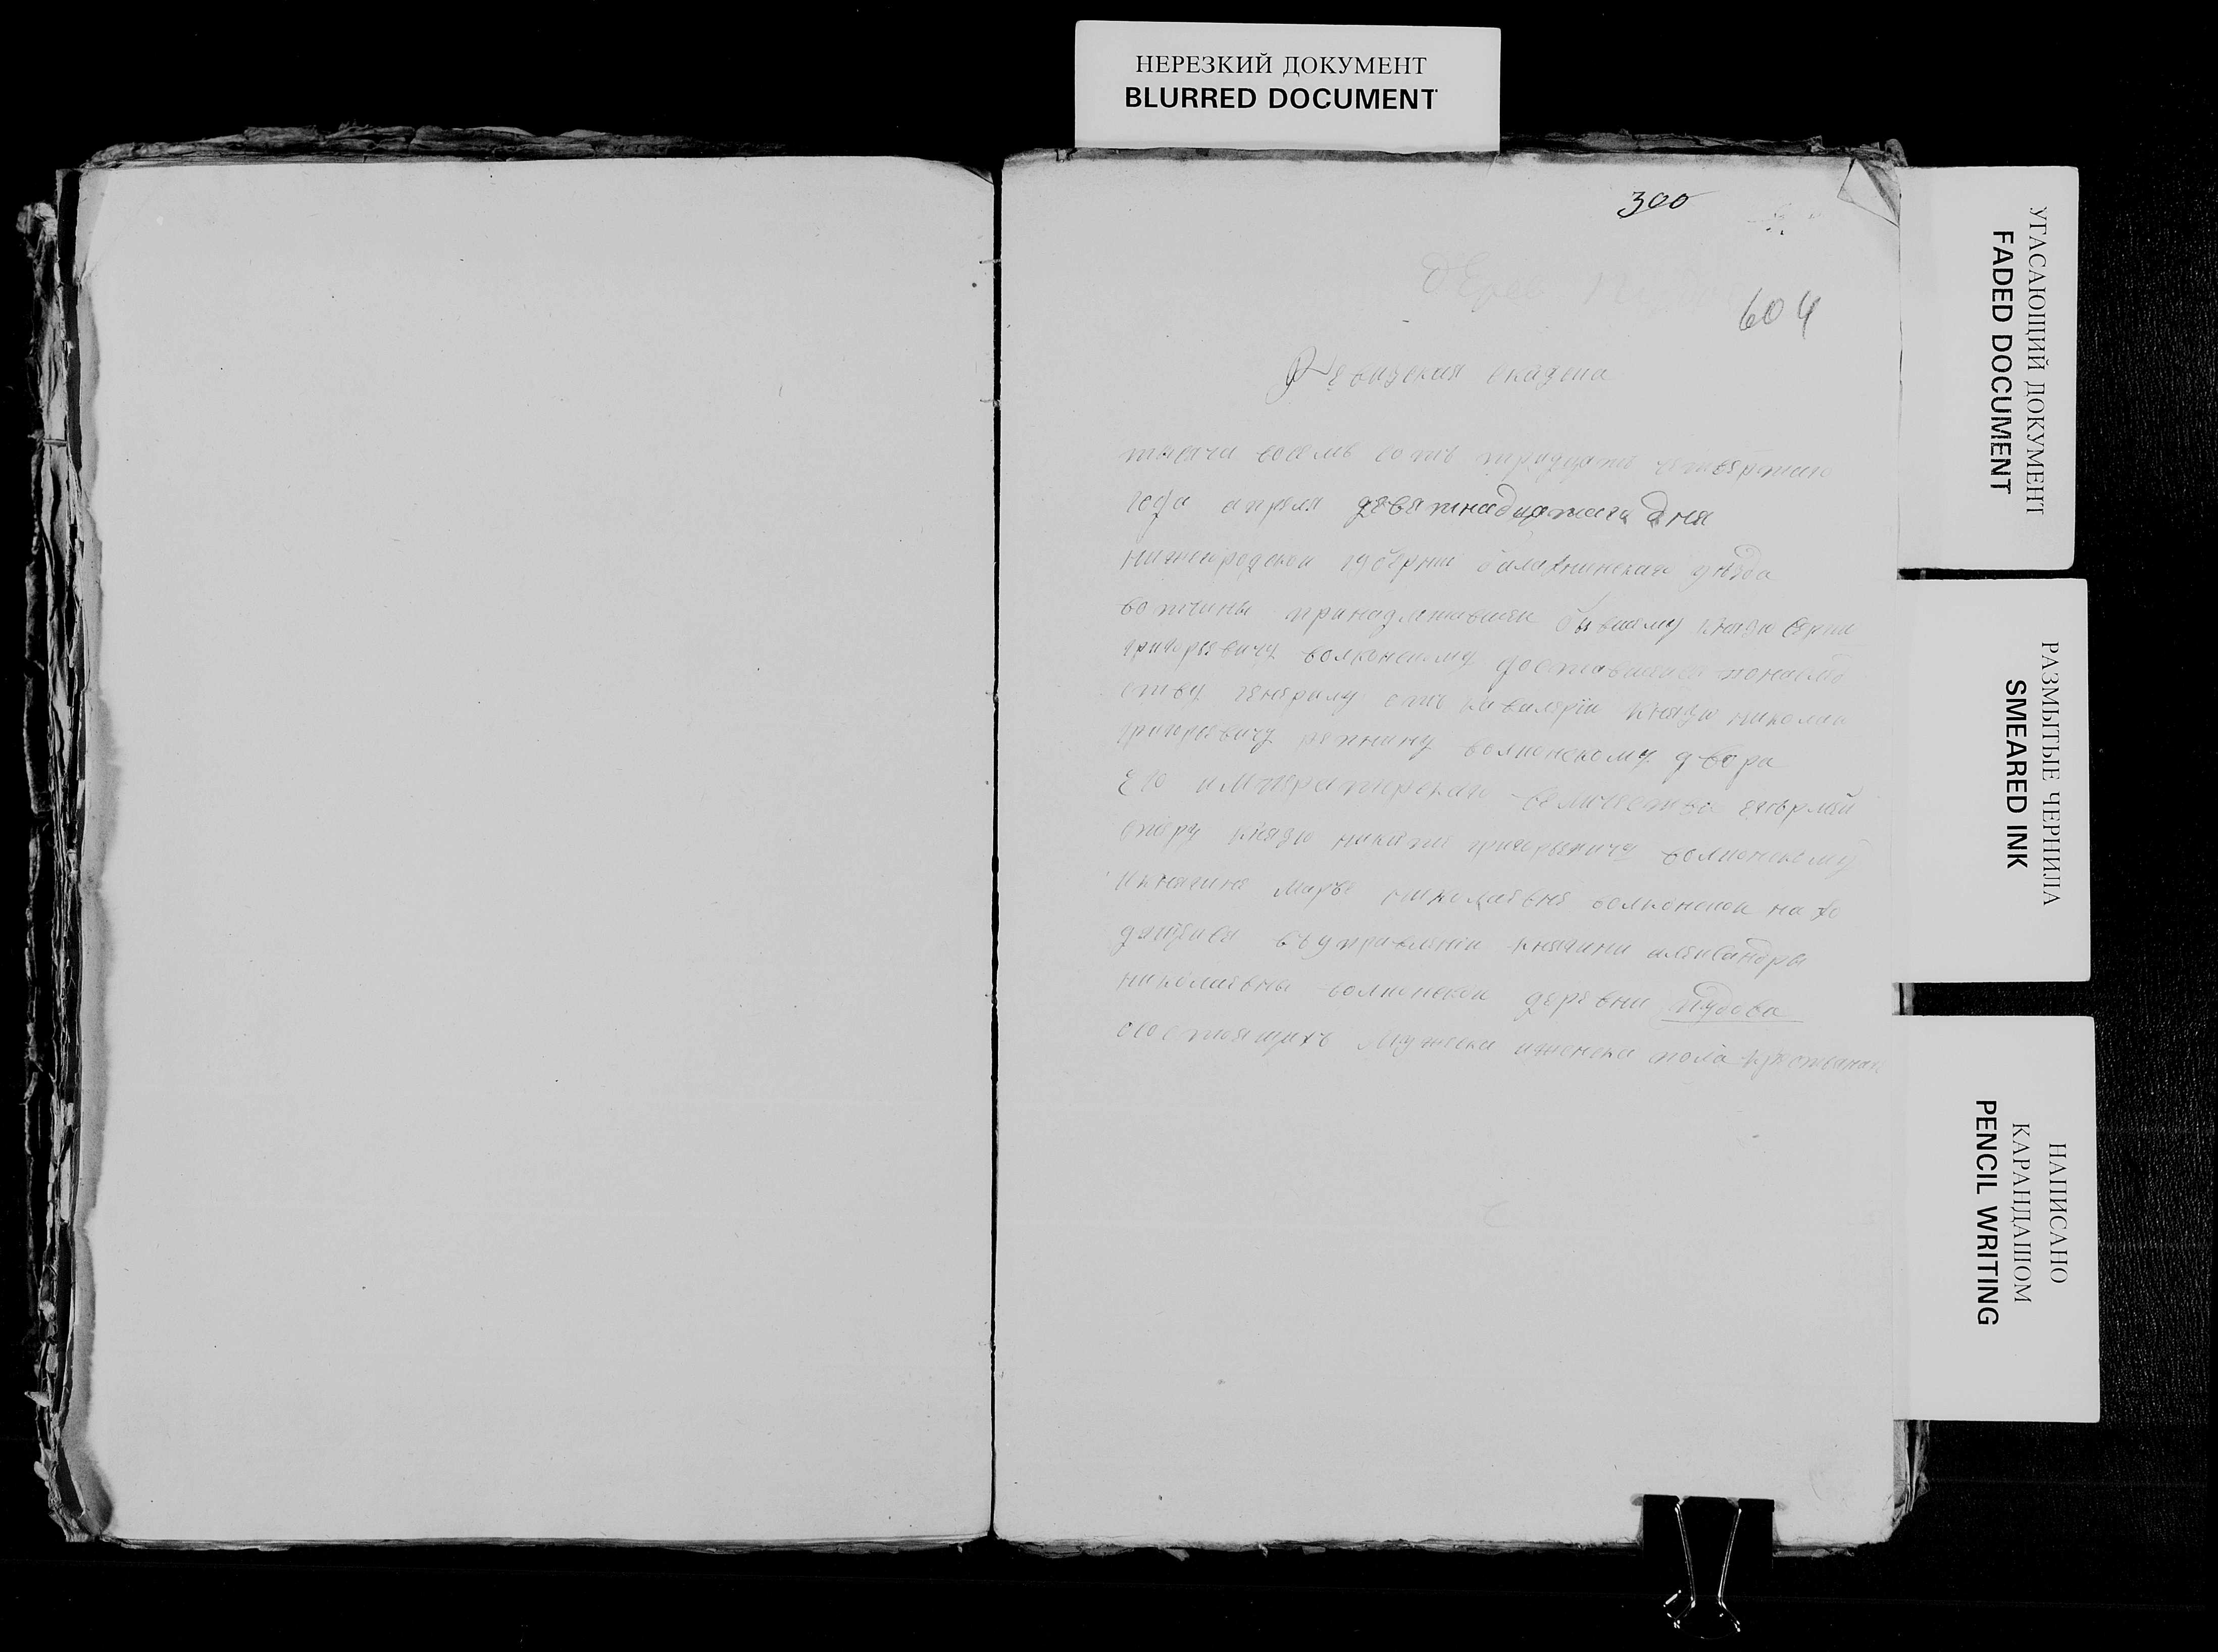 НЕРЕЗКИЙ ДОКУМЕНТ
BLURRED DOCUMENT
300
604
Ревизская сказка
тысяча восемь сотъ тридцать четвертаго
года апреля девятнадцатага дня
нижегородской губернии балахнинскаго уѣзда
вотчины принадлежавшей бывшему князю Сергею
григорьевичу волконскому доставшейся понаслед
ству генералу отъ кавалерiи князю николаю
григорьевичу репнину волконскому двора
его императорскаго величества егермей
стеру князю никите григорьевичу волконскому
и княгине марье николаевне волконской нахо
дящейся въ управленiи княгини александры
николаевны волконской деревни
состоящихъ мужска и женска пола крестьянах
УГАСАЮЩИЙ ДОКУМЕНТ
FADED DOCUMENT
РАЗМЫТЫЕ ЧЕРНИЛА
SMEARED INK
НАПИСАНО
КАРАНДАШОМ
PENCIL WRITING